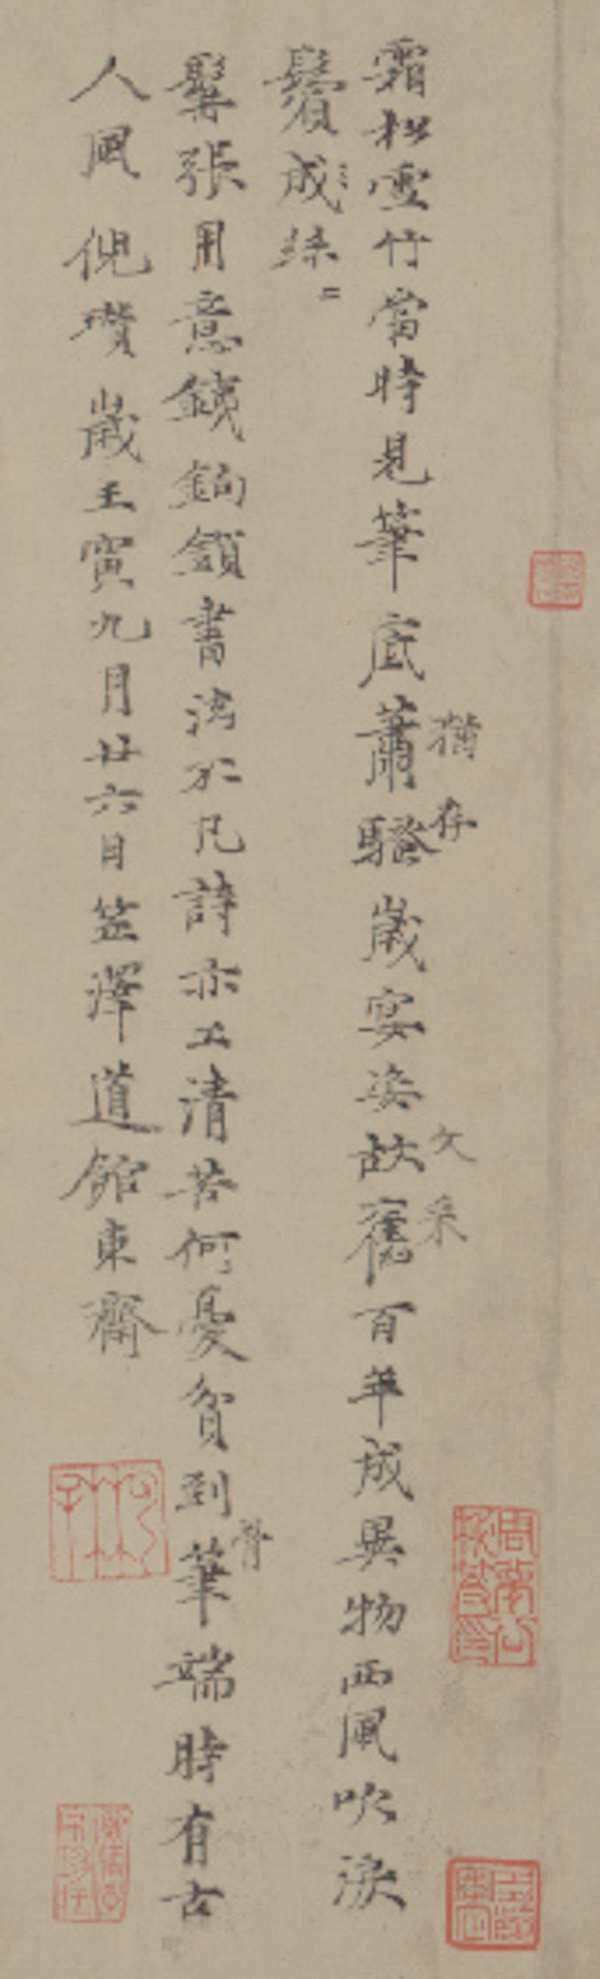 霜松雪竹當時見筆底蕭騷歲宴姿故舊百年成異物西風吹淚
猶存
文采
鬢成絲
髯張用意鐵鉤鎖書法不凡詩亦工清苦何憂貧到筆端時有古
骨
人風 倪瓚 歲壬寅九月廿六日笠澤道館東齋